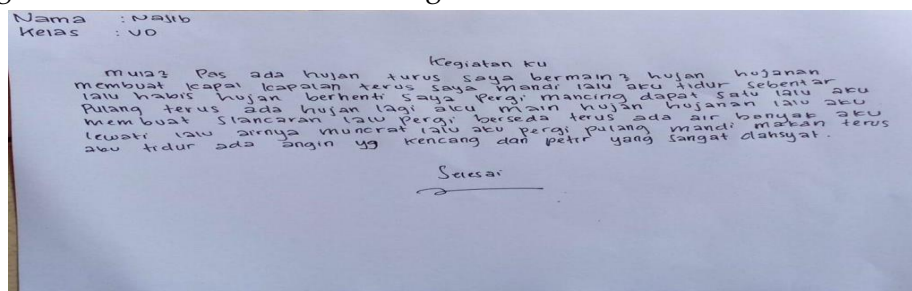 Nama : Najib
Kelas : VD
Kegiatan ku
mula2 Pas ada hujan turus saya bermain2 hujan hujanan
membuat kapal kapalan terus saya mandi lalu aku tidur sebentar
lalu habis hujan berhenti saya pergi mancing dapat satu lalu aku
Pulang terus ada hujan lagi aku main hujan hujanan lalu aku
membuat slancaran lalu pergi berseda terus ada air banyak aku
lewati lalu airnya muncrat lalu aku pergi pulang mandi makan terus
aku tidur ada angin yg kencang dan petir yang sangat dahsyat.
Selesai